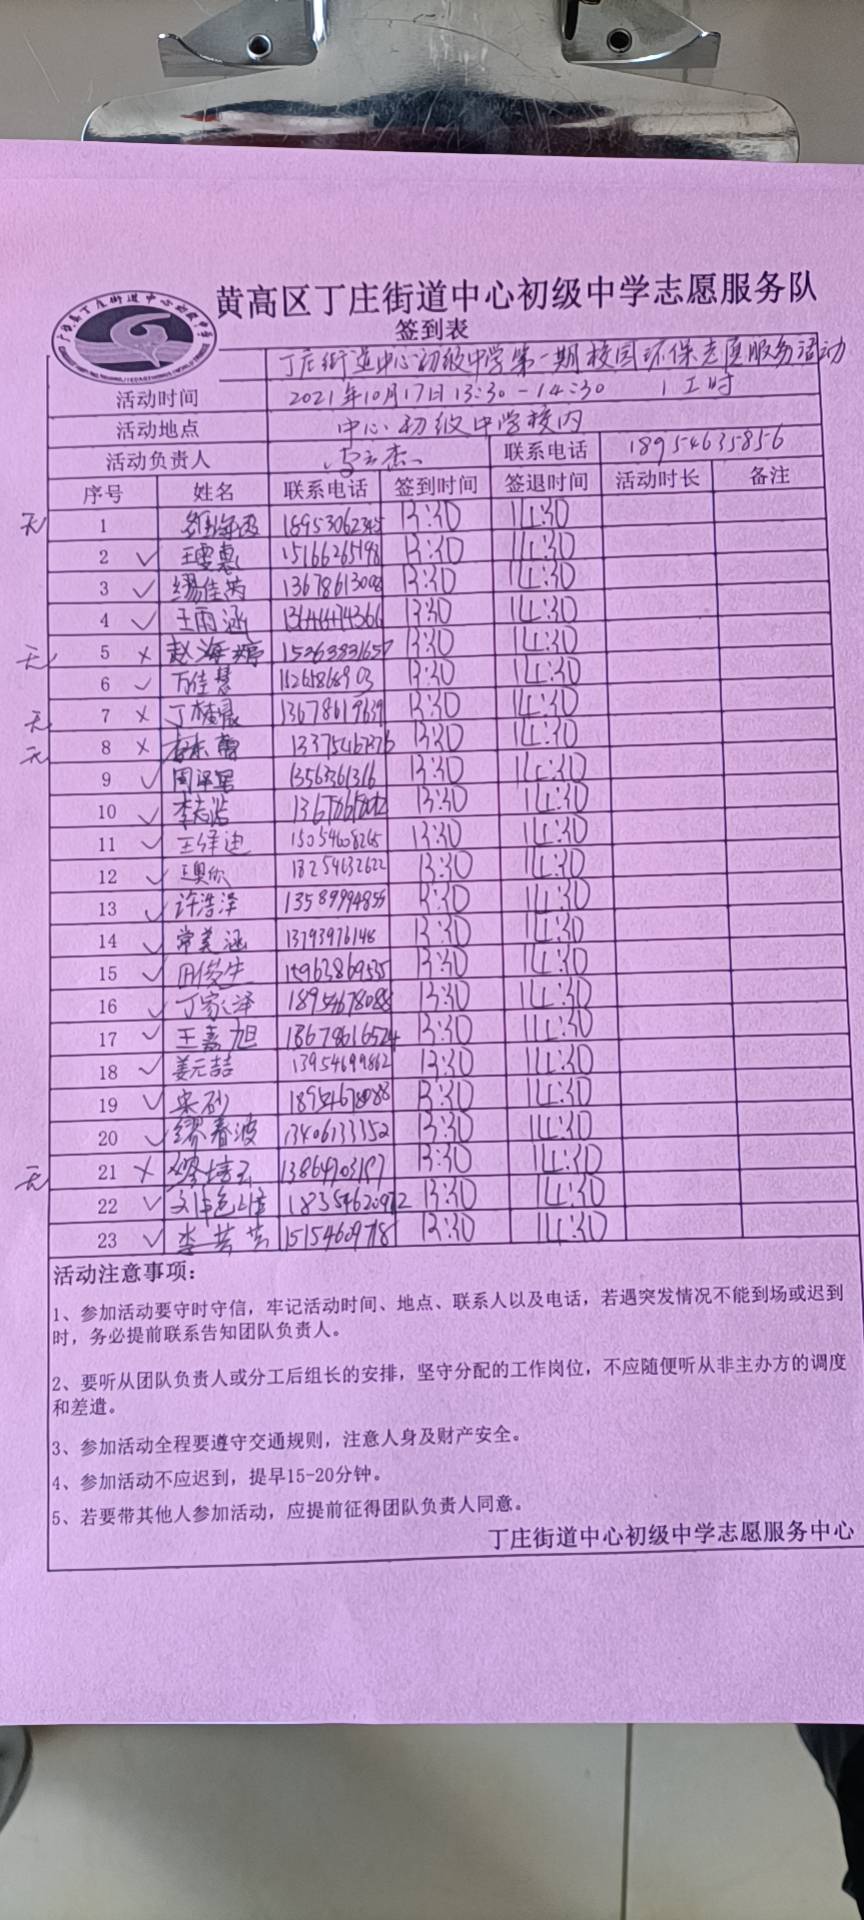 黄高区丁庄街道中心初级中学志愿服务队
签到表
丁庄街道中心初级中学第一期校园环保志愿服务活动
活动时间 2021年10月17日13:30-14:30 1工时
活动地点 中心初级中学校内
活动负责人 联系电话 18954635856
序号 姓名 联系电话 签到时间 签退时间 活动时长 备注
无 1 13:30 14:30
2 ✓ 王雯惠 15166265198 13:30 14:30
3 ✓ 缪佳芮 13:30 14:30
4 ✓ 王雨涵 13:30 14:30
无 5 × 赵海婷 15363831657 13:30 14:30
6 ✓ 万佳慧 13:30 14:30
无 7 × 13678619639 13:30 14:30
无 8 × 13:30 14:30
9 ✓ 13:30 14:30
10 ✓ 李志浩 13:30 14:30
11 ✓ 王绎迪 15054608265 13:30 14:30
12 ✓ 18254632622 13:30 14:30
13 ✓ 许浩泽 13589994855 13:30 14:30
14 ✓ 常美涵 13793976148 13:30 14:30
15 ✓ 田俊生 15963869535 13:30 14:30
16 ✓ 丁家泽 18954678088 13:30 14:30
17 ✓ 王嘉旭 18678616524 13:30 14:30
18 ✓ 姜元喆 13954699862 13:30 14:30
19 ✓ 宋砂 18954678088 13:30 14:30
20 ✓ 缪春波 13406133352 13:30 14:30
无 21 × 13864703197 13:30 14:30
22 ✓ 13:30 14:30
23 ✓ 李芸芸 15154609718 13:30 14:30
活动注意事项：
1、参加活动要守时守信，牢记活动时间、地点、联系人以及电话，若遇突发情况不能到场或迟到
时，务必提前联系告知团队负责人。
2、要听从团队负责人或分工后组长的安排，坚守分配的工作岗位，不应随便听从非主办方的调度
和差遣。
3、参加活动全程要遵守交通规则，注意人身及财产安全。
4、参加活动不应迟到，提早15-20分钟。
5、若要带其他人参加活动，应提前征得团队负责人同意。
丁庄街道中心初级中学志愿服务中心